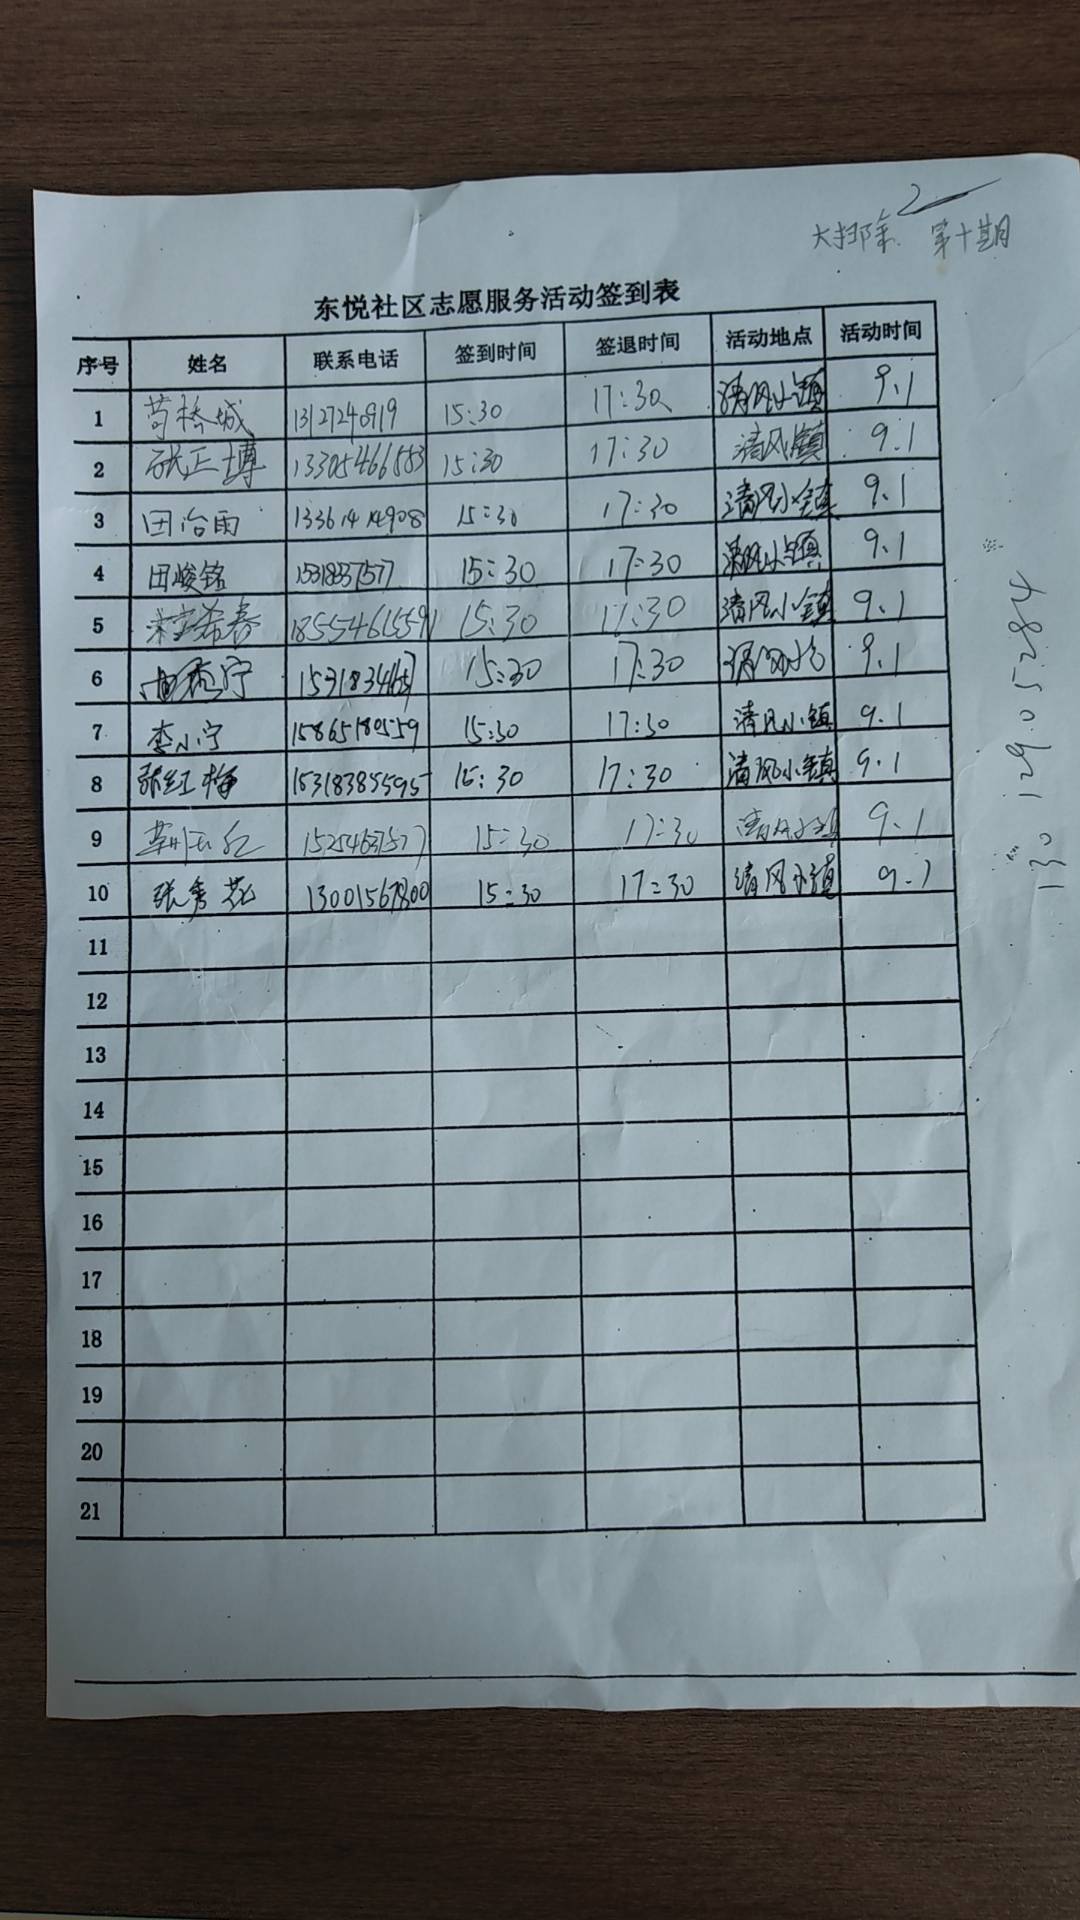 大扫除 第十期
东悦社区志愿服务活动签到表
序号 姓名 联系电话 签到时间 签退时间 活动地点 活动时间
1 苟桥城 15:30 17:30 清风小镇 9.1
2 张正博 13305466583 15:30 17:30 清风镇 9.1
3 田治雨 13361414908 15:30 17:30 清风小镇 9.1
4 田峻铭 15318337577 15:30 17:30 清风小镇 9.1
5 希春 18554615591 15:30 17:30 清风小镇 9.1
6 宁 15318834657 15:30 17:30 9.1
7 李小宁 15865180559 15:30 17:30 清风小镇 9.1
8 张红梅 15318385595 15:30 17:30 清风小镇 9.1
9 15:30 17:30 9.1
10 张秀花 13001567800 15:30 17:30 清风小镇 9.1
11
12
13
14
15
16
17
18
19
20
21